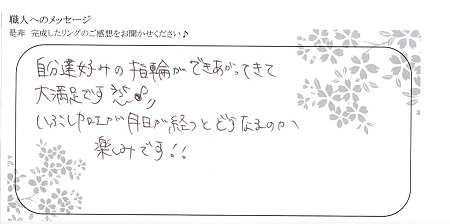 職人へのメッセージ
是非 完成したリングのご感想をお聞かせください♪
自分達好みの指輪ができあがってきて
大満足です
いぶし加工が月日が経つとどうなるのか
楽しみです!!